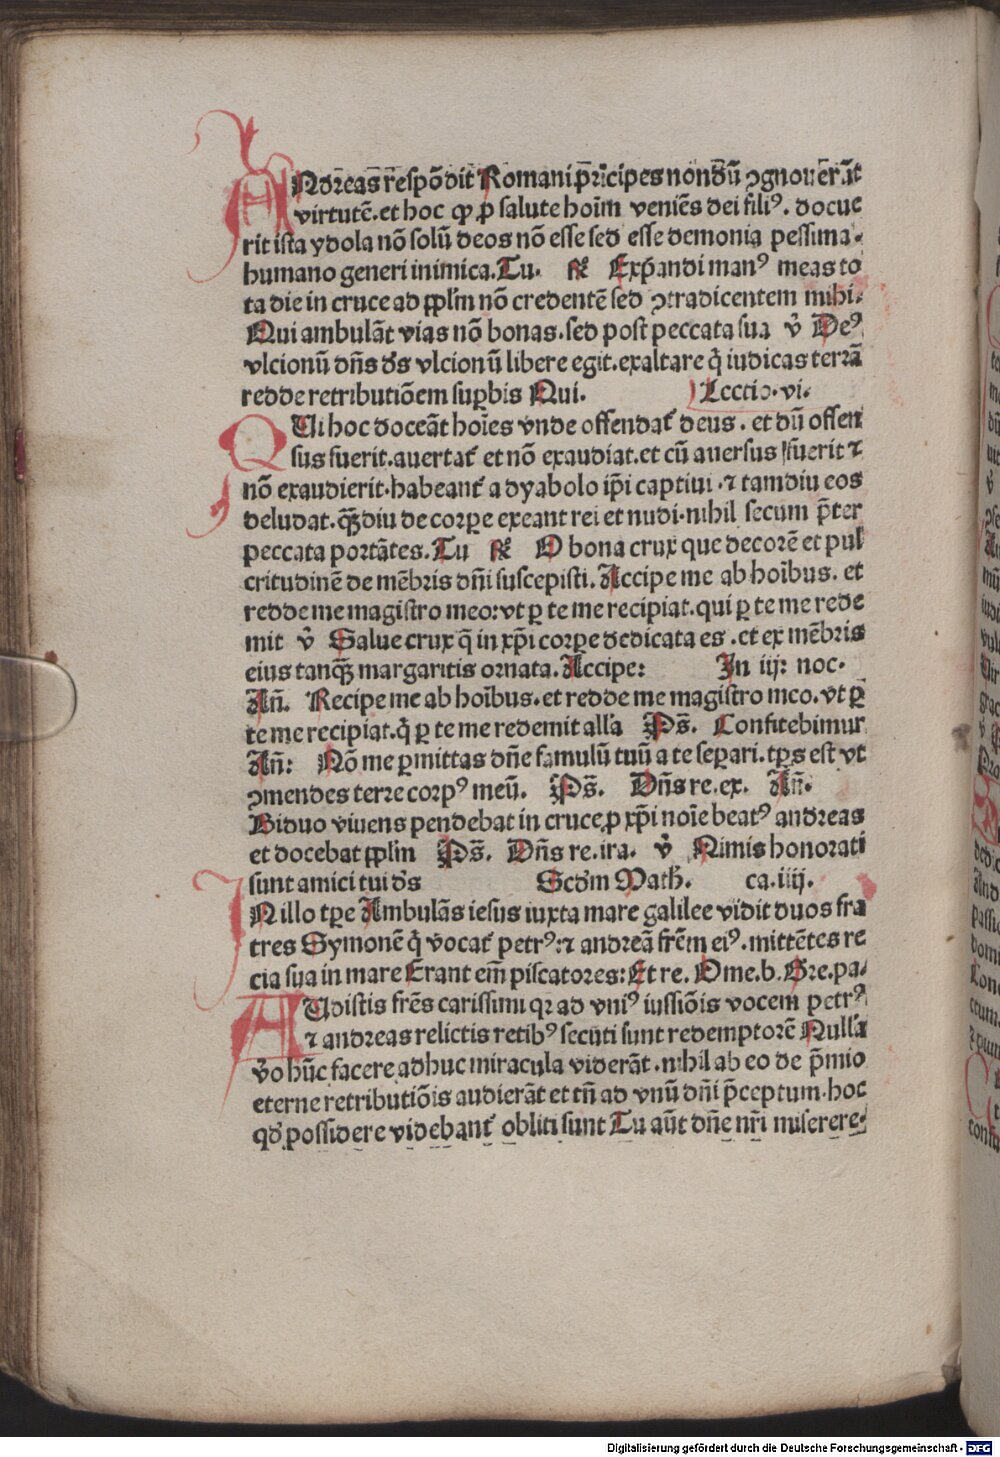 ANdreas respõdit Romani pͥncipes nondũ ꝯgnouerãt
virtutẽ. et hoc ꝙ ꝓ salute hoĩm veniẽs dei filiꝰ. docue
rit ista ydola nõ solũ deos nõ esse sed esse demonia pessima.
humano generi inimica. Tu. ℟ Expãdi manꝰ meas to
ta die in cruce ad pplm̃ nõ credentẽ sed ꝯtradicentem mihi.
Qui ambulãt vias nõ bonas. sed post peccata sua ℣ Deꝰ
vlcionũ dñs ds̃ vlcionũ libere egit. exaltare q̇ iudicas terrã
redde retributiõem suꝑbis Qui. Lectio. vi.
QUi hoc doceãt hoĩes vnde offendat᷑ deus. et dũ offen
sus fuerit. auertat᷑ et nõ exaudiat. et cũ auersus fuerit ⁊
nõ exaudierit. habeant᷑ a dyabolo ip̃i captiui. ⁊ tamdiu eos
deludat. q̃ꝫdiu de corpe exeant rei et nudi. nihil secum p̃ter
peccata portãtes. Tu ℟ O bona crux que decorẽ et pul
critudinẽ de mẽbris dñi suscepisti. Accipe me ab hoĩbus. et
redde me magistro meo: vt ꝑ te me recipiat. qui ꝑ te me rede
mit ℣ Salue crux q̃ in xp̃i corpe dedicata es. et ex mẽbris
eius tanq̃ꝫ margaritis ornata. Accipe: In iij: noc.
Añ. Recipe me ab hoĩbus. et redde me magistro meo. vt ꝑ
te me recipiat. q̇ ꝑ te me redemit alla Ps̃. Confitebimur
Añ: Nõ me ꝑmittas dñe famulũ tuũ a te seꝑari. tp̃s est vt
ꝯmendes terre corpꝰ meũ. Ps̃. Dñs re. ex. Añ.
Biduo viuens pendebat in cruce ꝓ xp̃i noĩe beatꝰ andreas
et docebat pplm̃ Ps̃. Dñs re. ira. ℣ Nimis honorati
sunt amici tui ds̃ Scd̃m Math̃. ca. iiij.
IN illo tp̃e Ambulãs iesus iuxta mare galilee vidit duos fra
tres Symonẽ q̇ vocat᷑ petrꝰ: ⁊ andreã frẽm eiꝰ. mittẽtes re
cia sua in mare Erant em̃ piscatores: Et re. Ome. b. Gre. pa.
AUdistis frẽs carissimi qꝛ ad vniꝰ iussiõis vocem petrꝰ
⁊ andreas relictis retibꝰ secuti sunt redemptorẽ Nulla
v̊o hũc facere adhuc miracula viderãt. nihil ab eo de p̃mio
eterne retributiõis audierãt et tñ ad vnũ dñi p̃ceptum. hoc
qd̃ possidere videbant᷑ obliti sunt Tu aũt dñe nr̃i miserere.
Digitalisierung gefördert durch die Deutsche Forschungsgemeinschaft - DFG